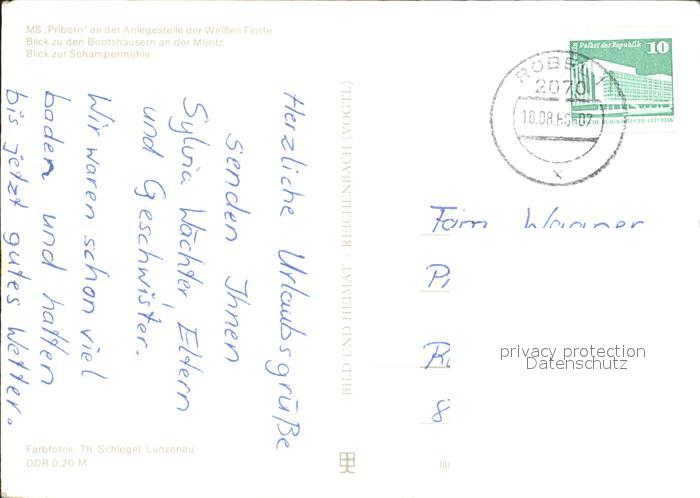 MS „Priborn" an der Anlegestelle der Weißen Flotte
Blick zu den Bootshäusern an der Müritz
Blick zur Schampermühle
Herzliche Urlaubsgrüße
senden Ihnen
Sylvia Wächter, Eltern
und Geschwister.
Wir waren schon viel
baden und hatten
bis jetzt gutes Wetter.
Farbfotos: Th. Schlegel, Lunzenau
DDR 0,20 M
BILD UND HEIMAT · REICHENBACH (VOGTL)
III/
Palast der Republik 10
DEUTSCHE DEMOKRATISCHE REPUBLIK
RÖBEL 1
2070
18.08.86-07
x
Fam. Wagner
8
privacy protection
Datenschutz